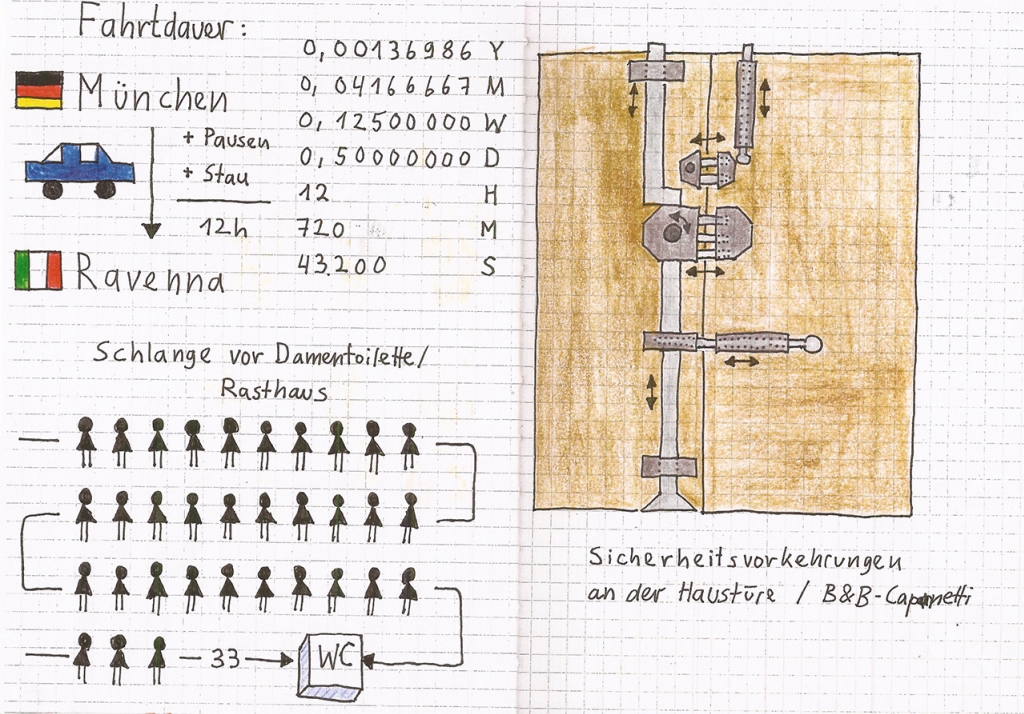 Fahrtdauer:
München
+ Pausen
+ Stau
12h
Ravenna
0,00136986 Y
0,04166667 M
0,12500000 W
0,50000000 D
12 H
720 M
43.200 S
Schlange vor Damentoilette/
Rasthaus
33
WC
Sicherheitsvorkehrungen
an der Haustüre / B&B-